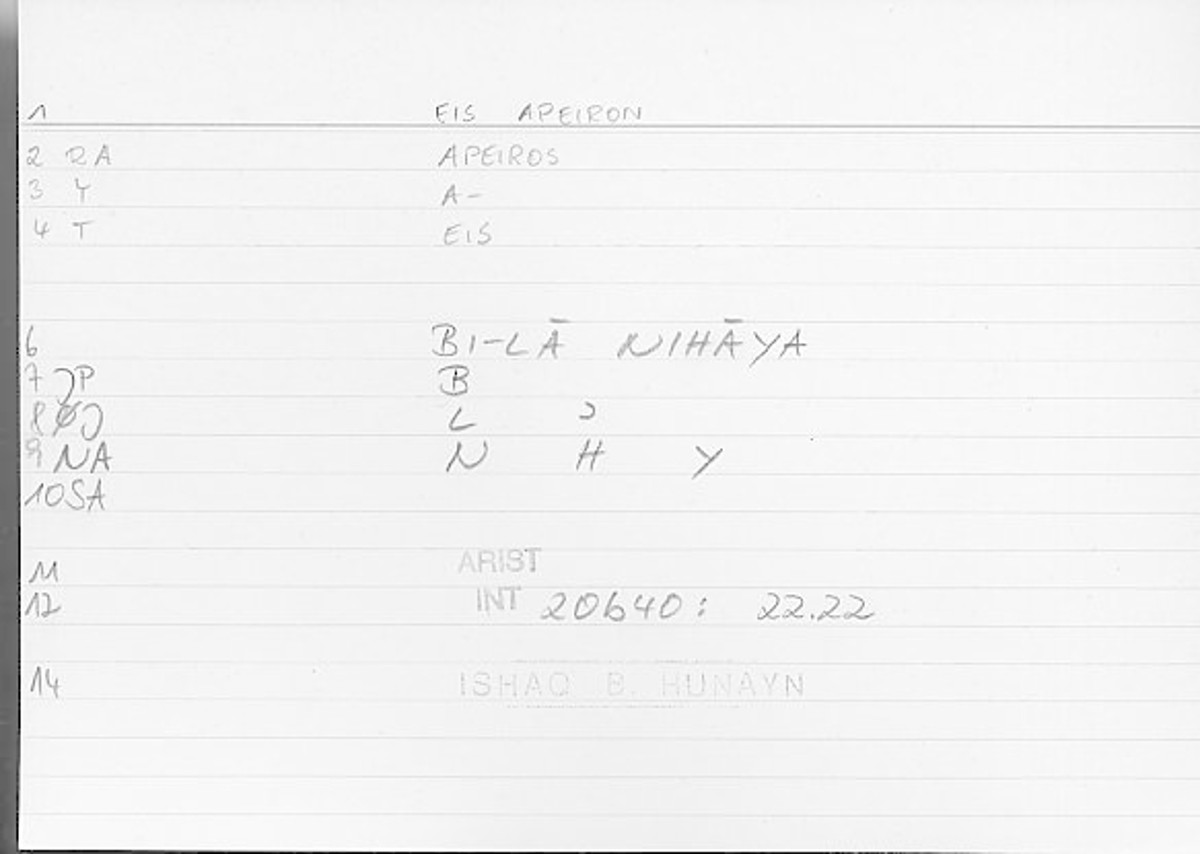 1 EIS APEIRON
2 RA APEIROS
3 Y A-
4 T EIS
6 BI-LĀ NIHĀYA
7 JP B
8 ØJ L ɔ
9 NA N H Y
10 SA
11 ARIST
12 INT 20640: 22.22
14 ISHAQ B. HUNAYN